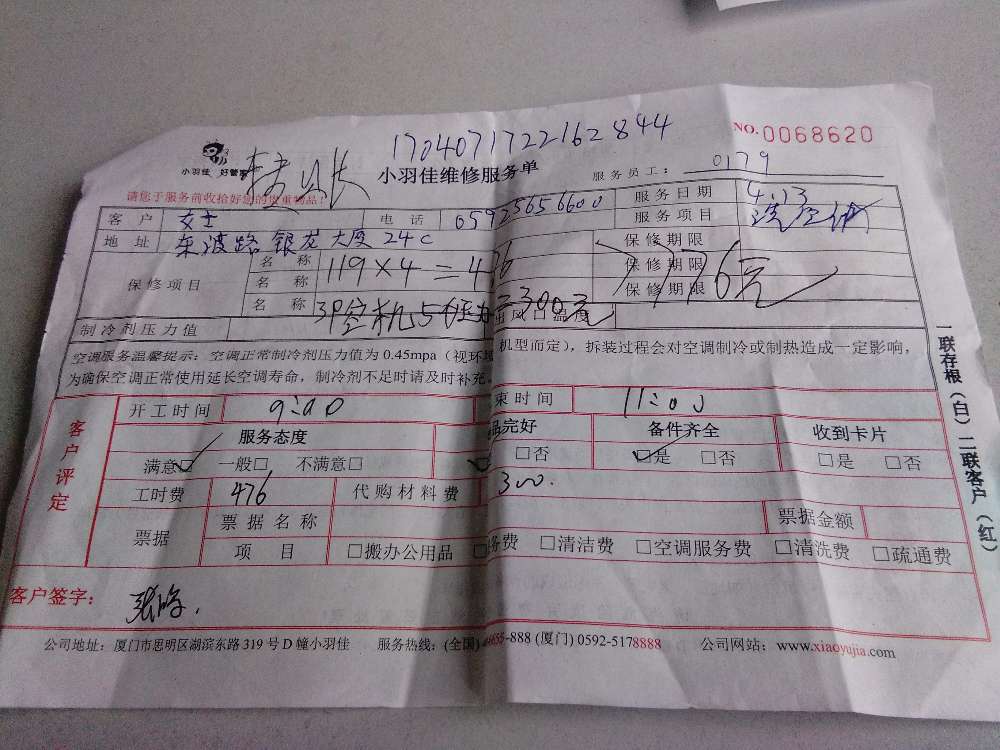 1704071722162844
NO.0068620
小羽佳 好管家
小羽佳维修服务单
服务员工： 0179
请您于服务前收拾好您的贵重物品！
客户 女士 电话 05925656600 服务日期 4.13
服务项目 洗空调
地址 东渡路银龙大厦24C
保修项目 名称 119×4=476 保修期限
名称 保修期限 776元
名称 3P空机 =300元 保修期限
制冷剂压力值 出风口温度
空调服务温馨提示：空调正常制冷剂压力值为 0.45mpa（视环境 机型而定），拆装过程会对空调制冷或制热造成一定影响，
为确保空调正常使用延长空调寿命，制冷剂不足时请及时补充。
客户评定
开工时间 9:00 束时间 11:00
服务态度 品完好 备件齐全 收到卡片
满意☑ 一般□ 不满意□ ☑ □否 ☑是 □否 □是 □否
工时费 476 代购材料费 300.
票据 票据名称 票据金额
项目 □搬办公用品 务费 □清洁费 □空调服务费 □清洗费 □疏通费
客户签字：
公司地址：厦门市思明区湖滨东路 319 号 D 幢小羽佳 服务热线：(全国) -888 (厦门) 0592-5178888 公司网站：www.xiaoyujia.com
一联存根（白）二联客户（红）